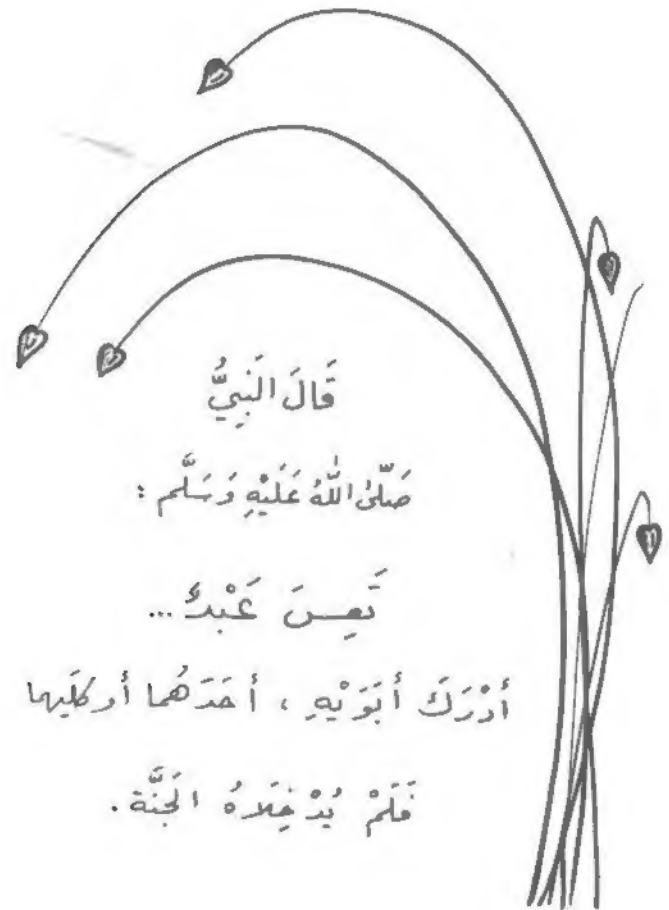 قَالَ النَبِيُّ
صَلّىٰ اللّٰهُ عَلَيْهِ وَسَلَّم :
تَعِسَ عَبْدٌ...
أدْرَكَ أبَوَيْهِ ، أحَدَهُما أو كلَيهما
فَلَمْ يُدْخِلاهُ الجَنَّة .